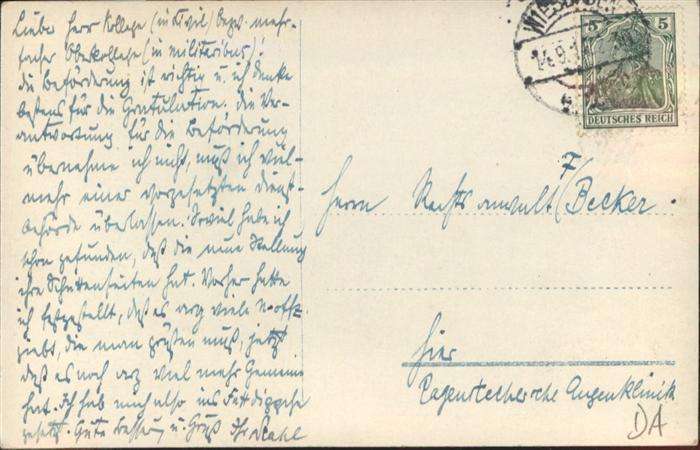 Lieber Herr Kollege (in Civil) bezw. mehr-
facher Oberkollege (in militaribus)!
Die Beförderung ist richtig u. ich danke
bestens für die Gratulation. Die Ver-
antwortung für die Beförderung
übernehme ich nicht, muß ich viel-
mehr einer vorgesetzten Dienst-
behörde überlassen. Soviel habe ich
schon gefunden, daß die neue Stellung
ihre Schattenseiten hat. Vorher hatte
ich festgestellt, daß es arg viele Uoffz.
giebt, die man grüßen muß, jetzt
daß es noch arg viel mehr Gemeine
hat. Ich hab mich also ins
gesetzt. Gute Besserung u. Gruß Ihr
WIESBADEN
14.9.1
5 5
DEUTSCHES REICH
Herrn Rechtsanwalt F/Becker.
hier
Pagenstechersche Augenklinik
DA